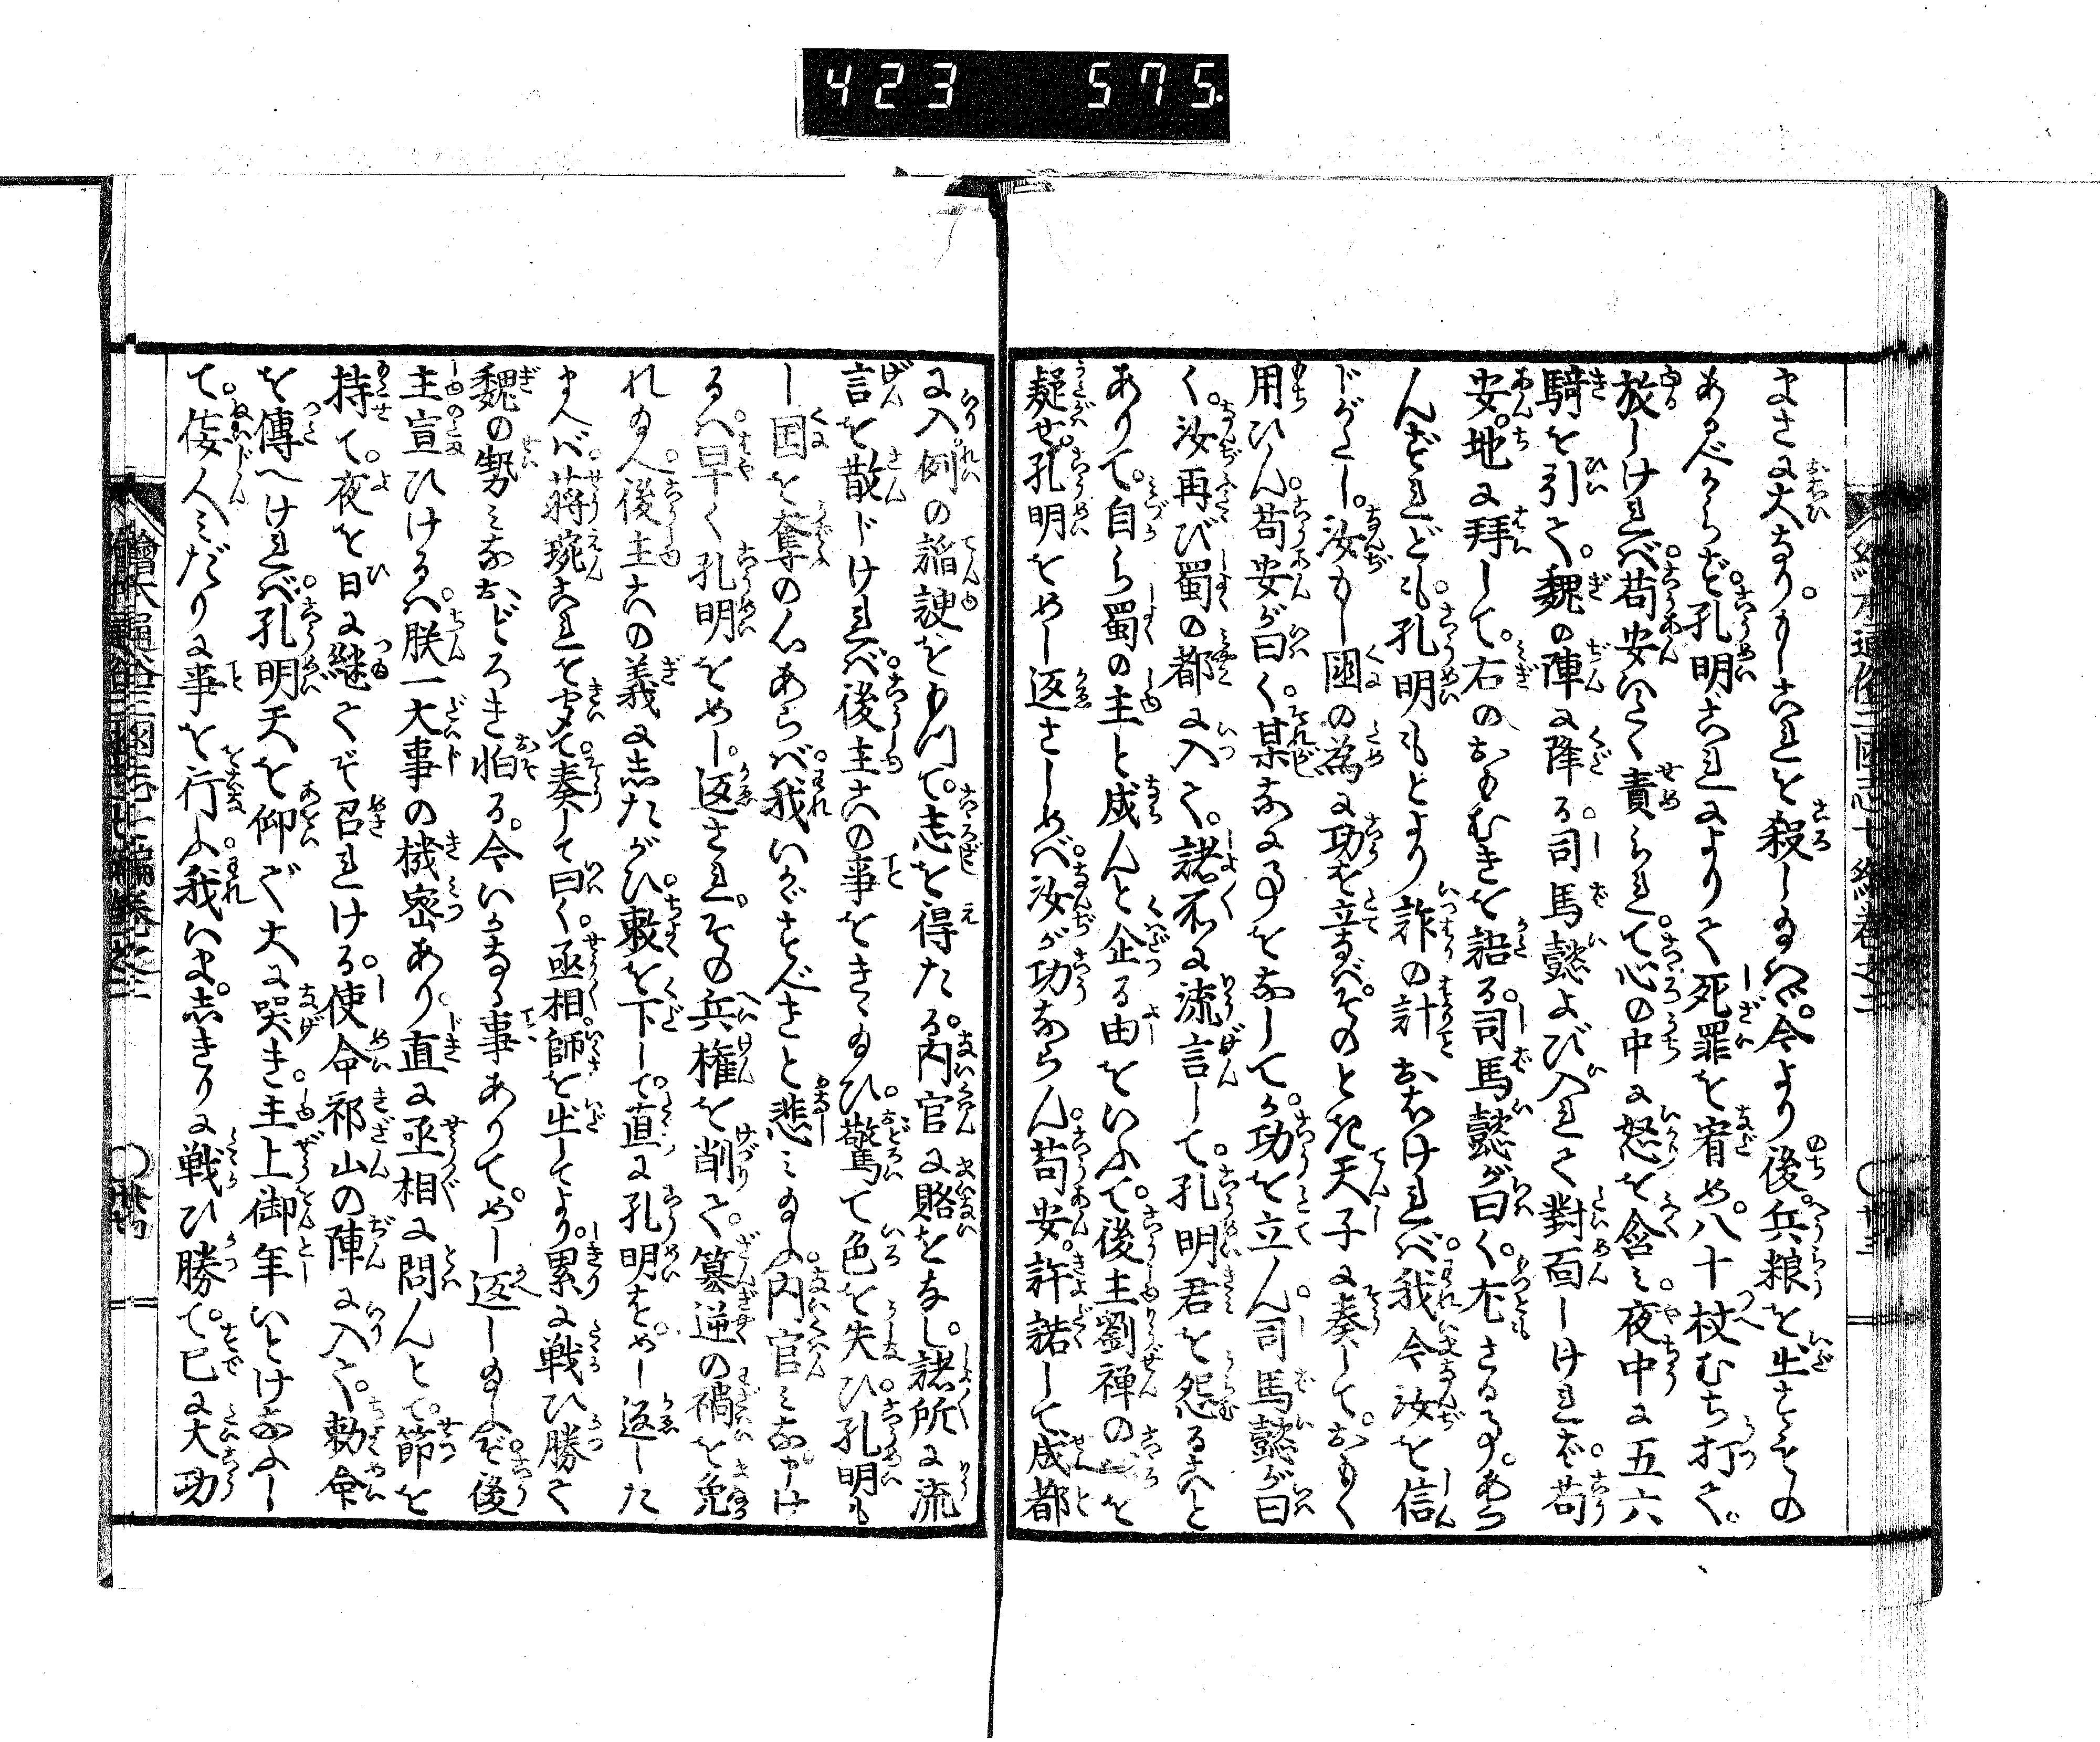 423 575.
まさに大なり。もしこれを殺し給はゞ。今より後兵粮を出さんもの
あるべからずと孔明これによりて死罪を宥め。八十杖むち打て。
放しければ。苟安いたく責られて。心の中に怒を含み。夜中に五六
騎を引て。魏の陣に降る。司馬懿よび入れて對面しければ。苟
安。地に拜して。右のおもむきを語る。司馬懿が曰く。尤さる事。あら
んなれども。孔明もとより詐の計おほければ。我今汝を信
じがたし。汝もし國の為に功を立なば。そのとき天子に奏して。おもく
用ひん。苟安が曰く。某なに事をなして。か功を立ん。司馬懿が曰
く。汝再び蜀の都に入て。諸所に流言して。孔明君を怨るこゝろ
ありて。自ら蜀の主と成んと企る由をいふて。後主劉禅の心を
疑せ。孔明をめし返さしめば。汝が功ならん。苟安。許諾して。成都
に入。例の謟諛をもつて。志を得たる。内官に賂をなし。諸所に流
言を散じければ。後主この事をきゝ給ひ。驚て色を失ひ。孔明も
し国を奪の心あらば。我いかゞすべきと悲み給ふ。内官みな申け
るは。早く孔明をめし。返され。その兵權を削て。簒逆の禍を免
れ給へ。後主この義にしたがひ。敕を下して。直に孔明をめし返した
まへば。蒋琬これを聞て。奏して曰く。丞相。師を出してより。累に戰ひ勝て
魏の勢みなおどろき怕る。今いかなる事ありてや。めし返し給ふぞ。後
主宣ひけるは。朕一大事の機密あり。直に丞相に問んとて。節を
持て。夜を日に継てぞ召れける。使命祁山の陣に入て。勅命
を傳へければ。孔明天を仰ぎ大に哭き。主上御年いとけなふし
て。侫人みだりに事を行ふ。我いましきりに戰ひ勝て。已に大功